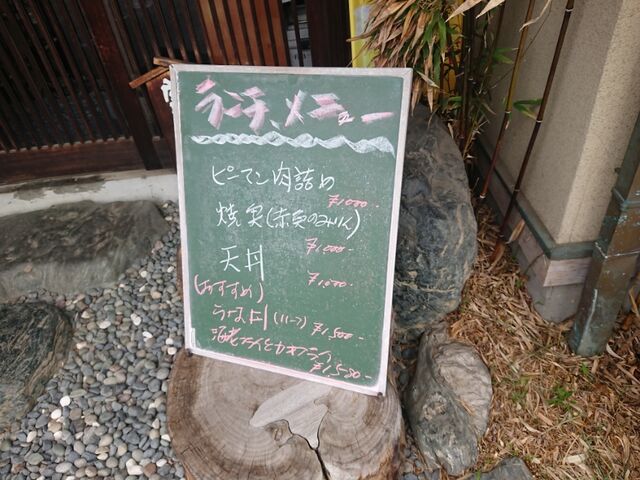 ランチ、メニュー
ピーマン肉詰め
¥1000-
焼魚(赤魚のみりん)
¥1,000-
天丼
¥1,000-
(おすすめ)
うな丼(ハーフ) ¥1,500-
海老フライとカキフライ
¥1,500-